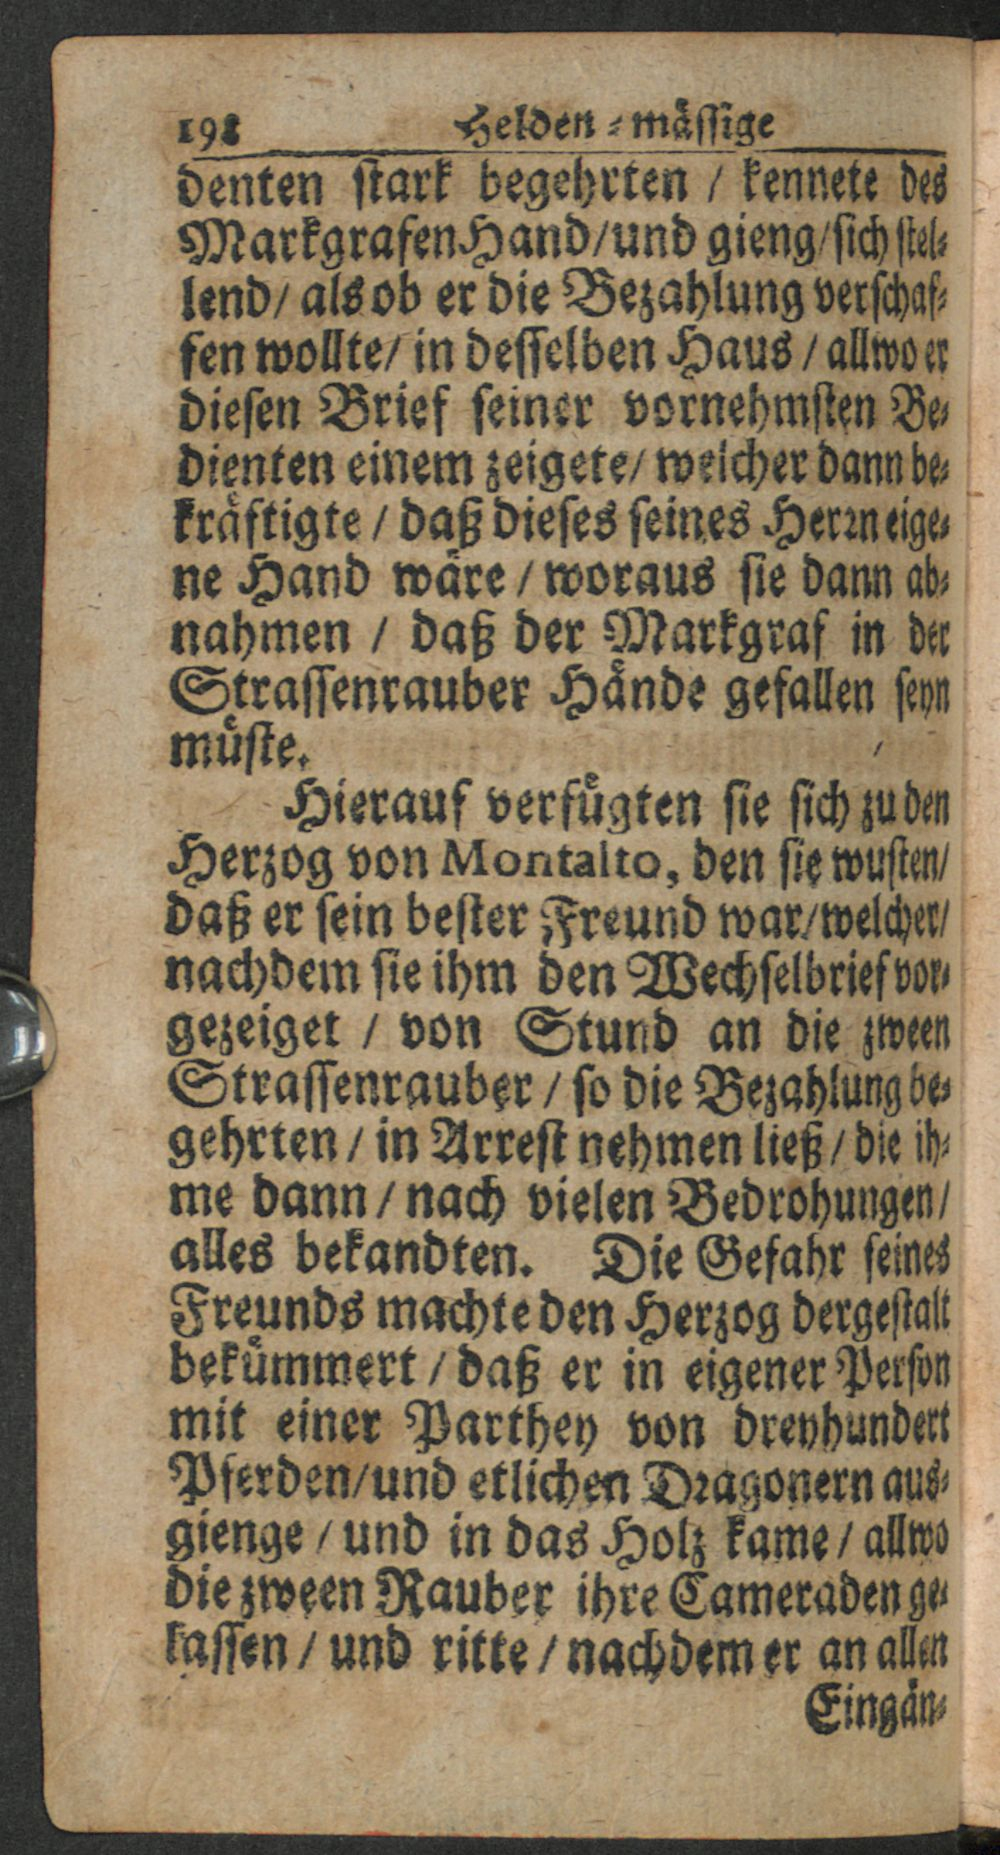 198 Helden-mässige
denten stark begehrten / kennete des
Markgrafen Hand/und gieng/sich stel-
lend/ als ob er die Bezahlung verschaf-
fen wollte/ in desselben Haus / allwo er
diesen Brief seiner vornehmsten Be-
dienten einem zeigete/ welcher dann be-
kräftigte / daß dieses seines Herrn eige-
ne Hand wäre / woraus sie dann ab-
nahmen / daß der Markgraf in der
Strassenrauber Hände gefallen seyn
müste.
Hierauf verfügten sie sich zu den
Herzog von Montalto, den sie wusten/
daß er sein bester Freund war/welcher/
nachdem sie ihm den Wechselbrief vor-
gezeiget / von Stund an die zween
Strassenrauber / so die Bezahlung be-
gehrten / in Arrest nehmen ließ / die ih-
me dann / nach vielen Bedrohungen/
alles bekandten. Die Gefahr seines
Freunds machte den Herzog dergestalt
bekümmert / daß er in eigener Person
mit einer Parthey von dreyhundert
Pferden/und etlichen Dragonern aus-
gienge / und in das Holz kame / allwo
die zween Rauber ihre Cameraden ge-
lassen / und ritte / nachdem er an allen
Eingän-